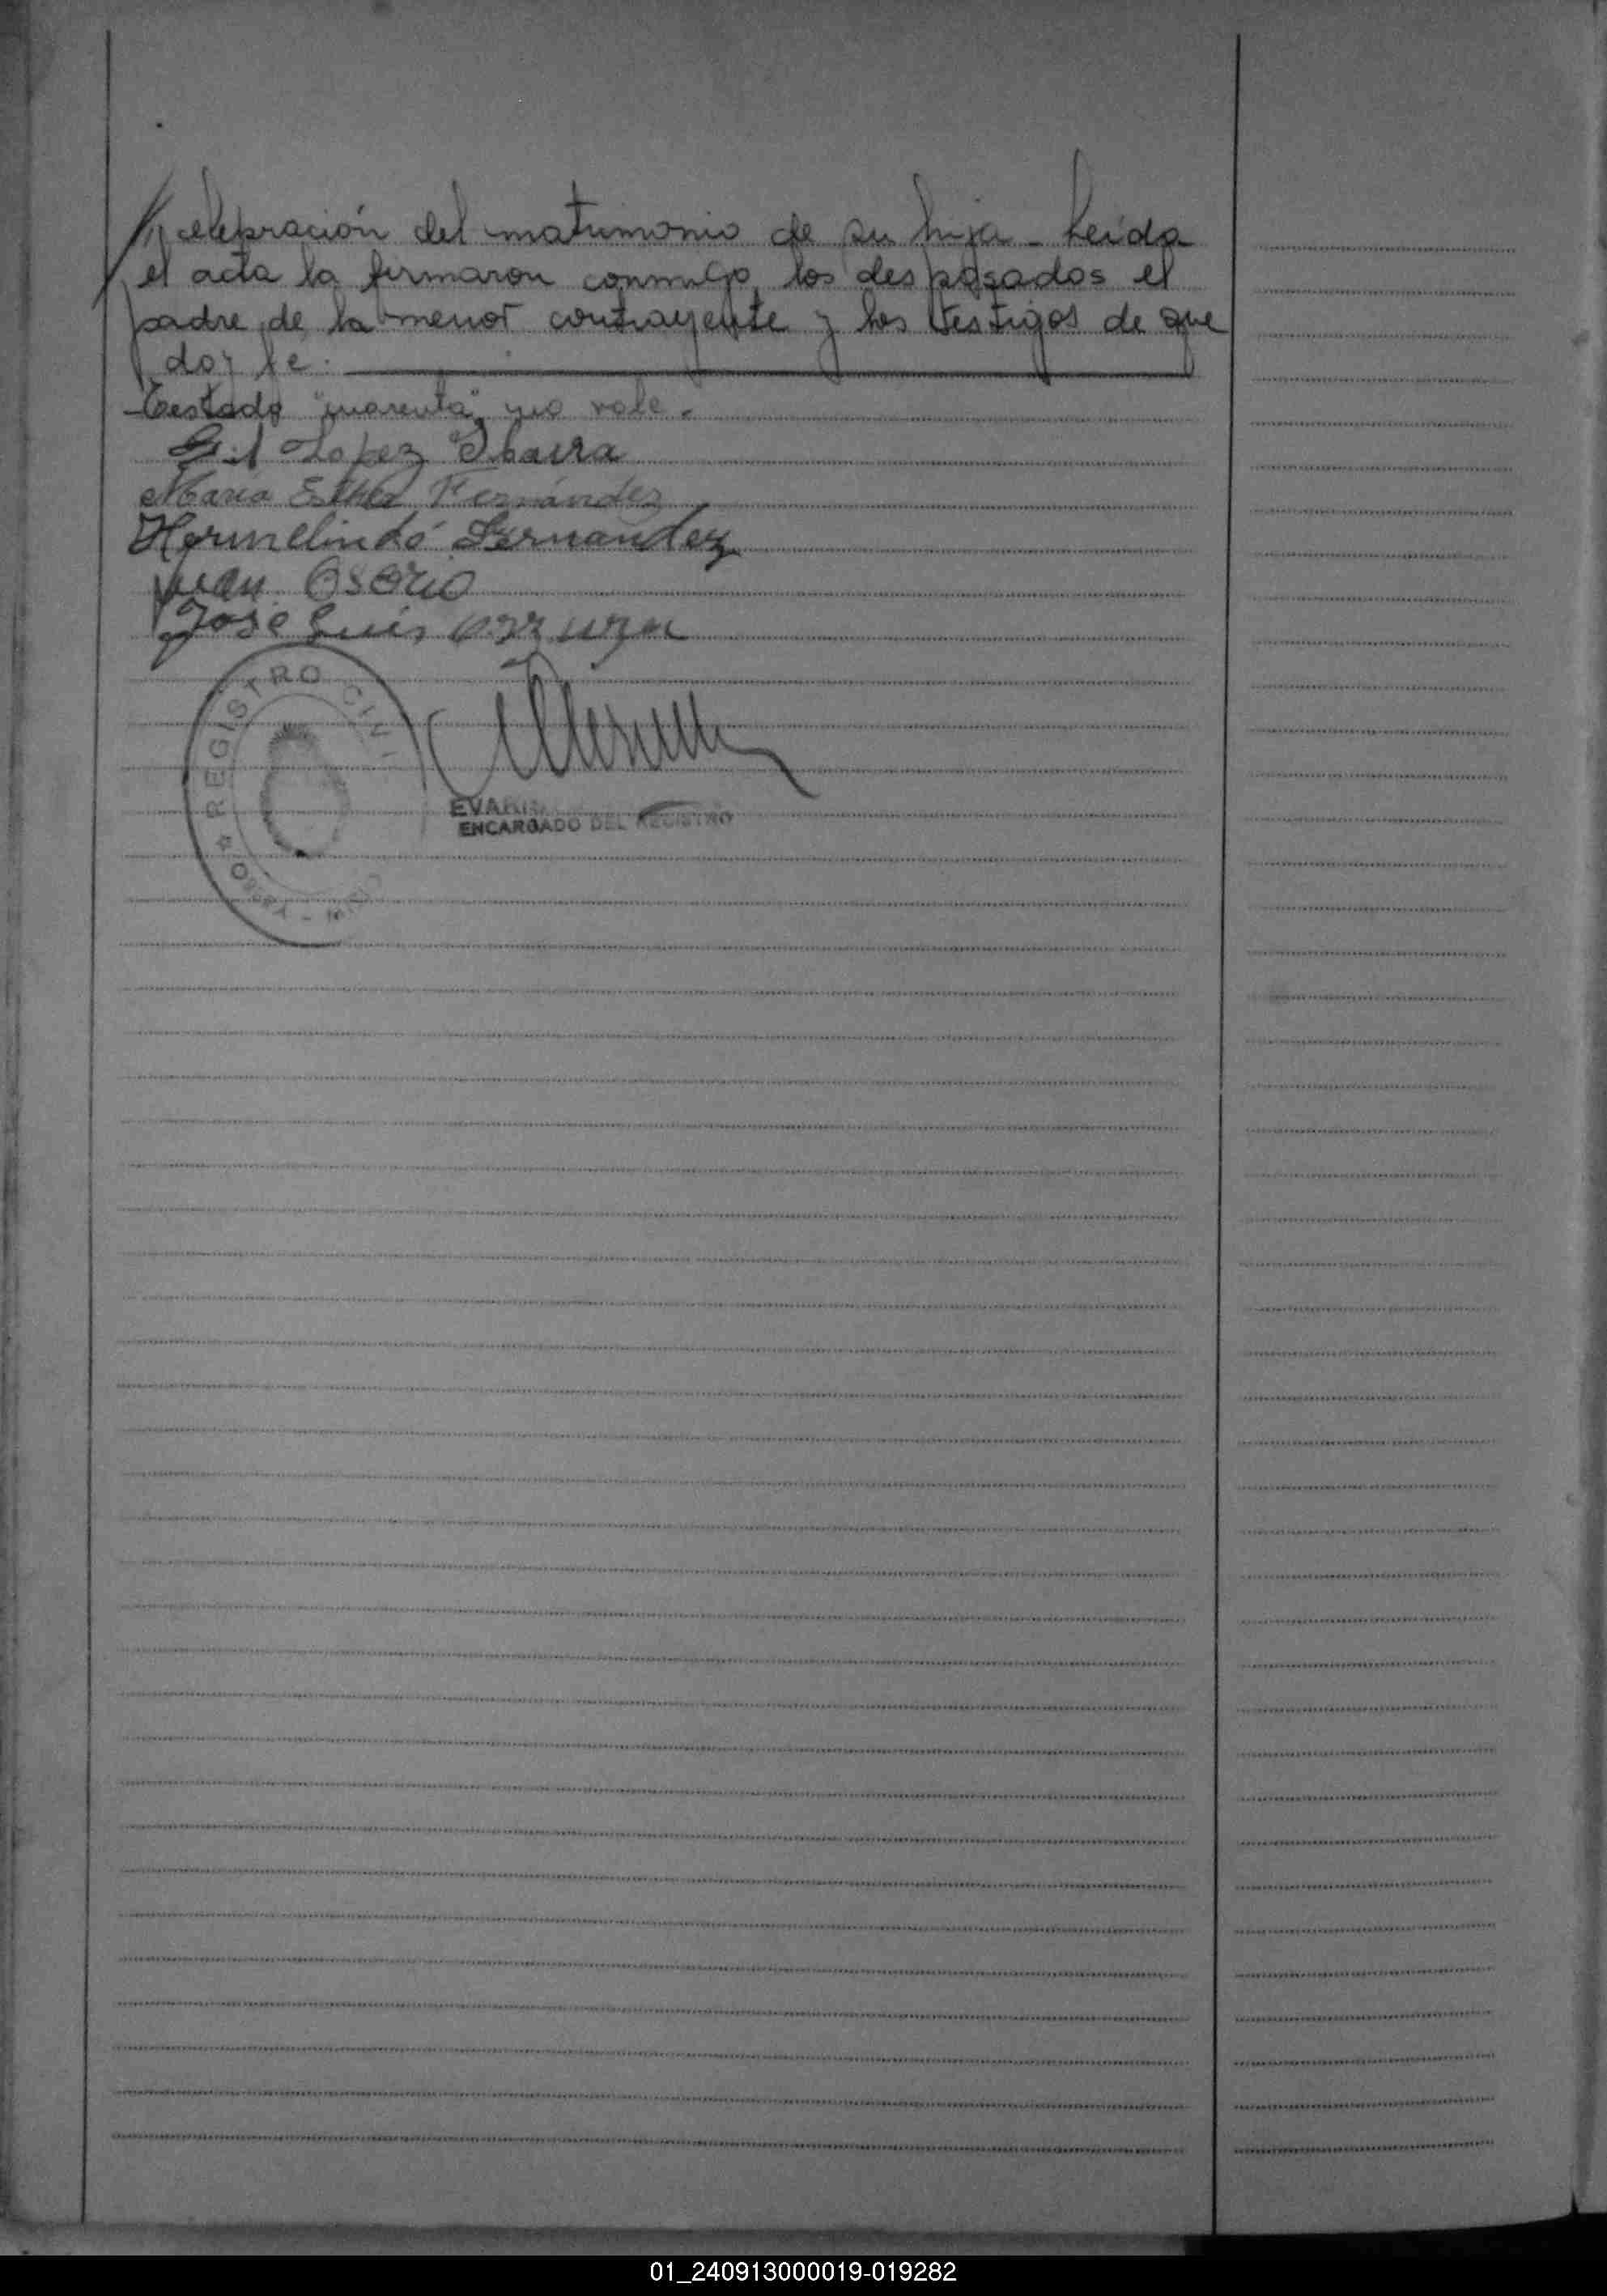 celebración del matrimonio de su hija - Leída
el acta la firmaron conmigo, los desposados el
padre de la menor contrayente y los testigos de que
doy fe.
Testado "cuarenta" no vale.
Gil Lopez Ibarra
Maria Esther Fernández
Hermelindo Fernandez
Juan Osorio
Jose Luis
REGISTRO CIVIL
ENCARGADO DEL REGISTRO
01_240913000019-019282